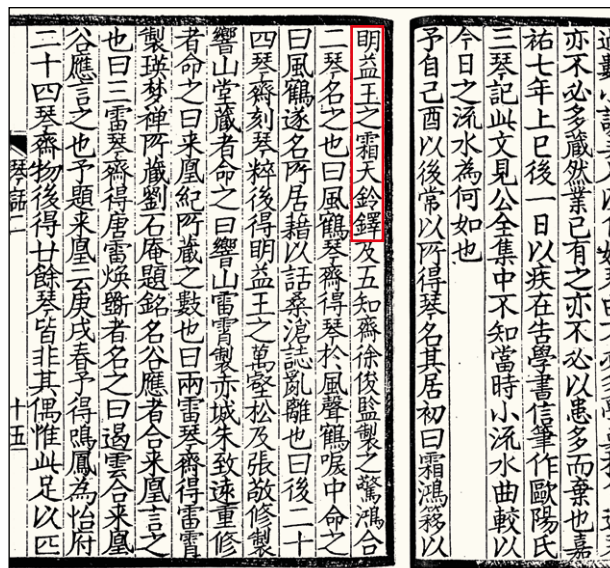 亦不必多藏然業已有之亦不必以患多而棄也嘉
祐七年上巳後一日以疾在告學書信筆作歐陽氏
三琴記此文見公全集中不知當時小流水曲較以
今日之流水為何如也
予自己酉以後常以所得琴名其居初曰霜鴻簃以
明益王之霜天鈴鐸及五知齋徐俊監製之驚鴻合
二琴名之也曰風鶴琴齋得琴於風聲鶴唳中命之
曰風鶴遂名所居藉以話桑滄誌亂離也曰後二十
四琴齋刻琴粹後得明益王之萬壑松及張敬修製
響山堂藏者命之曰響山雷霄製赤城朱致遠重修
者命之曰来凰紀所藏之數也曰兩雷琴齋得雷霄
製瑛夢禪所藏劉石庵題銘名谷應者合来凰言之
也曰三雷琴齋得唐雷煥斲者名之曰遏雲合来凰
谷應言之也予題来凰云庚戌春予得鳴鳳為怡府
二十四琴齋物後得廿餘琴皆非其偶惟此足以匹
琴話二 十五